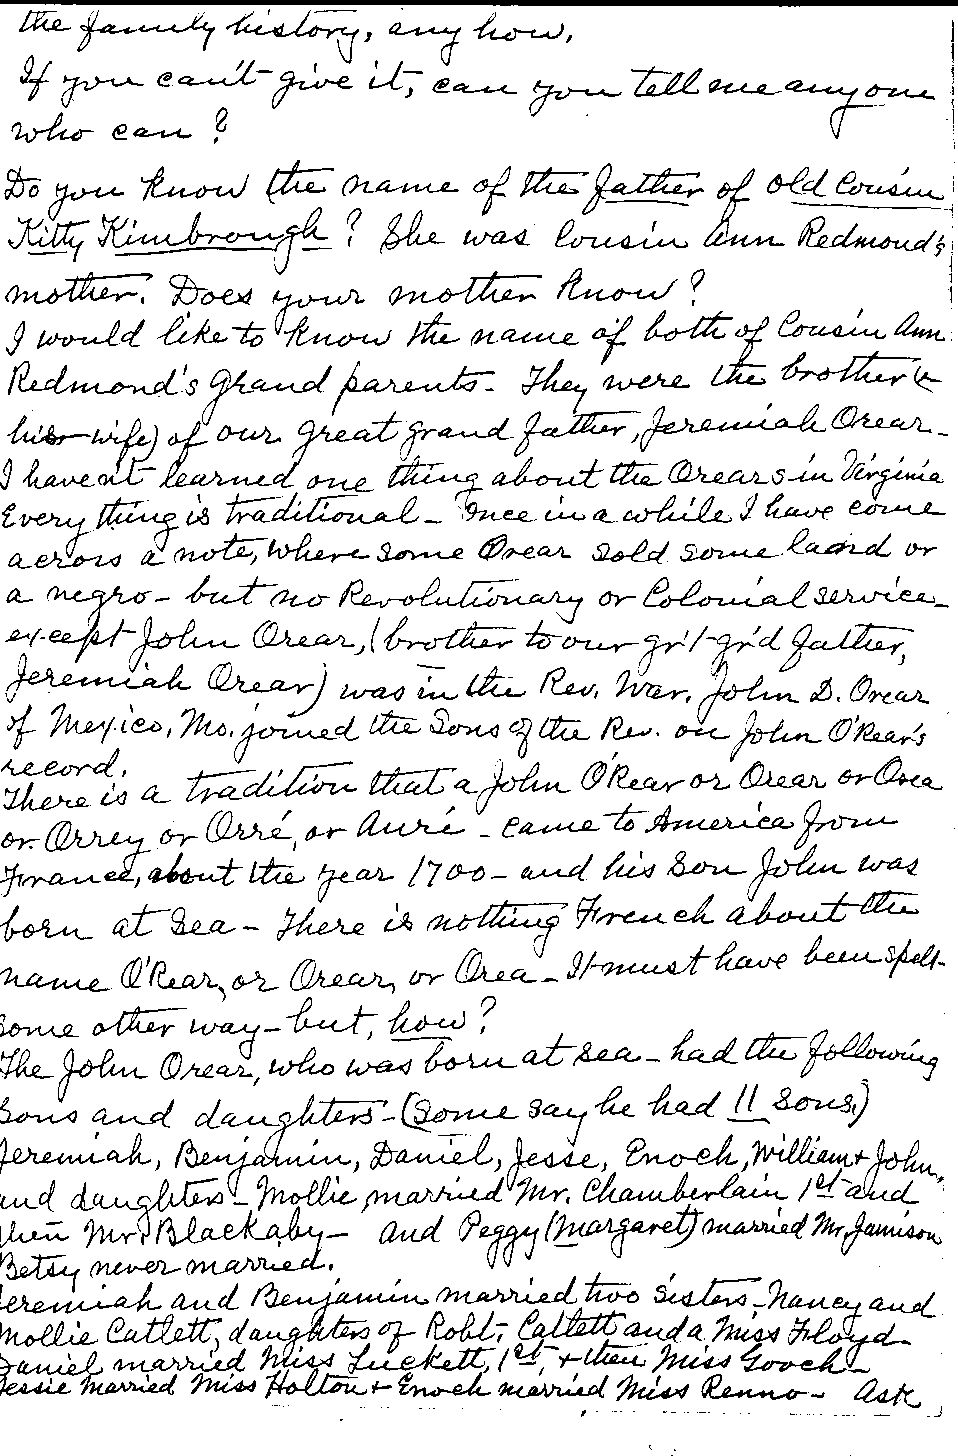 the family history, any how.
If you can't give it, can you tell me anyone
who can?
Do you know the name of the father of old Cousin
Kitty Kimbrough? She was Cousin Ann Redmond's
mother. Does your mother know?
I would like to know the name of both of Cousin Ann
Redmond's Grand parents - They were the brother (&
his wife) of our great grand father, Jeremiah Orear -
I haven't learned one thing about the Orears in Virginia
Every thing is traditional - Once in a while I have come
across a note, where some Orear sold some land or
a negro - but no Revolutionary or Colonial service -
except John Orear, (brother to our gr't gr'd father,
Jeremiah Orear) was in the Rev. War. John D. Orear
of Mexico, Mo. joined the Sons of the Rev. on John O'Rear's
record.
There is a tradition that a John O'Rear or Orear or Orea
or Orrey or Orré, or Auré - came to America from
France, about the year 1700 - and his son John was
born at Sea - There is nothing French about the
name O'Rear, or Orear, or Orea - It must have been spelt
some other way - but, how?
The John Orear, who was born at sea - had the following
sons and daughters - (some say he had 11 sons.)
Jeremiah, Benjamin, Daniel, Jesse, Enoch, William & John,
and daughters - Mollie, married Mr. Chamberlain 1st and
then Mr. Blackaby - and Peggy (Margaret) married Mr. Jamison
Betsy never married.
Jeremiah and Benjamin married two sisters - Nancy and
Mollie Catlett, daughters of Robt. Catlett and a Miss Floyd -
Daniel married Miss Luckett, 1st, & then Miss Gooch -
Jessie married Miss Holton & Enoch married Miss Renno - Ask